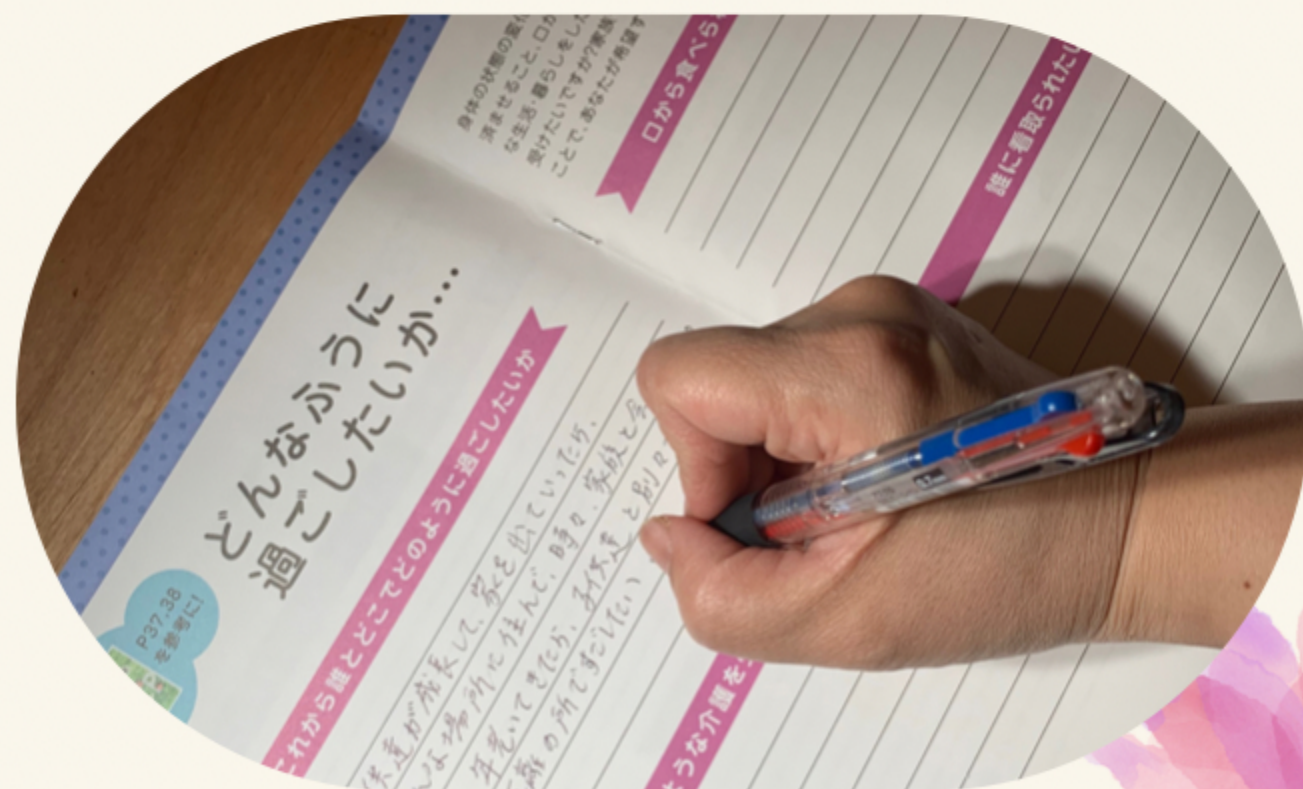 どんなふうに
過ごしたいか…
P37,38
を参考に!
これから誰とどこでどのように過ごしたいか
供達が成長して、家を出ていったら、
な場所に住んで、時々、家族と会
年老いてきたら、子供達と別々
離の所ですごしたい
ような介護を
身体の状態の変化
済ませること、口か
な生活・暮らしをした
受けたいですか?家族
ことで、あなたが希望す
口から食べら
誰に看取られたい